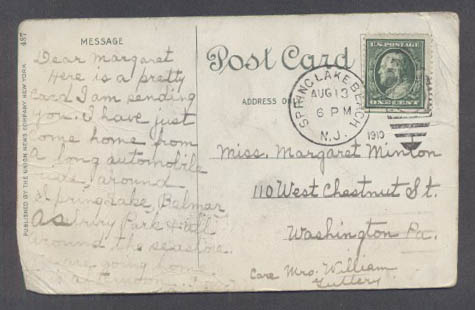 487
PUBLISHED BY THE UNION NEWS COMPANY NEW YORK
MESSAGE
Post Card
ADDRESS
Dear Margaret
Here is a pretty
card I am sending
you. I have just
come home from
a long automobile
ride, around
Spring Lake, Belmar
Asbury Park & all
around the seashore.
are going home
U.S. POSTAGE
ONE CENT
SPRING LAKE BEACH
AUG 13
6 PM
N.J.
1910
Miss. Margaret Minton
110 West Chestnut St.
Washington Pa.
Care Mrs. William